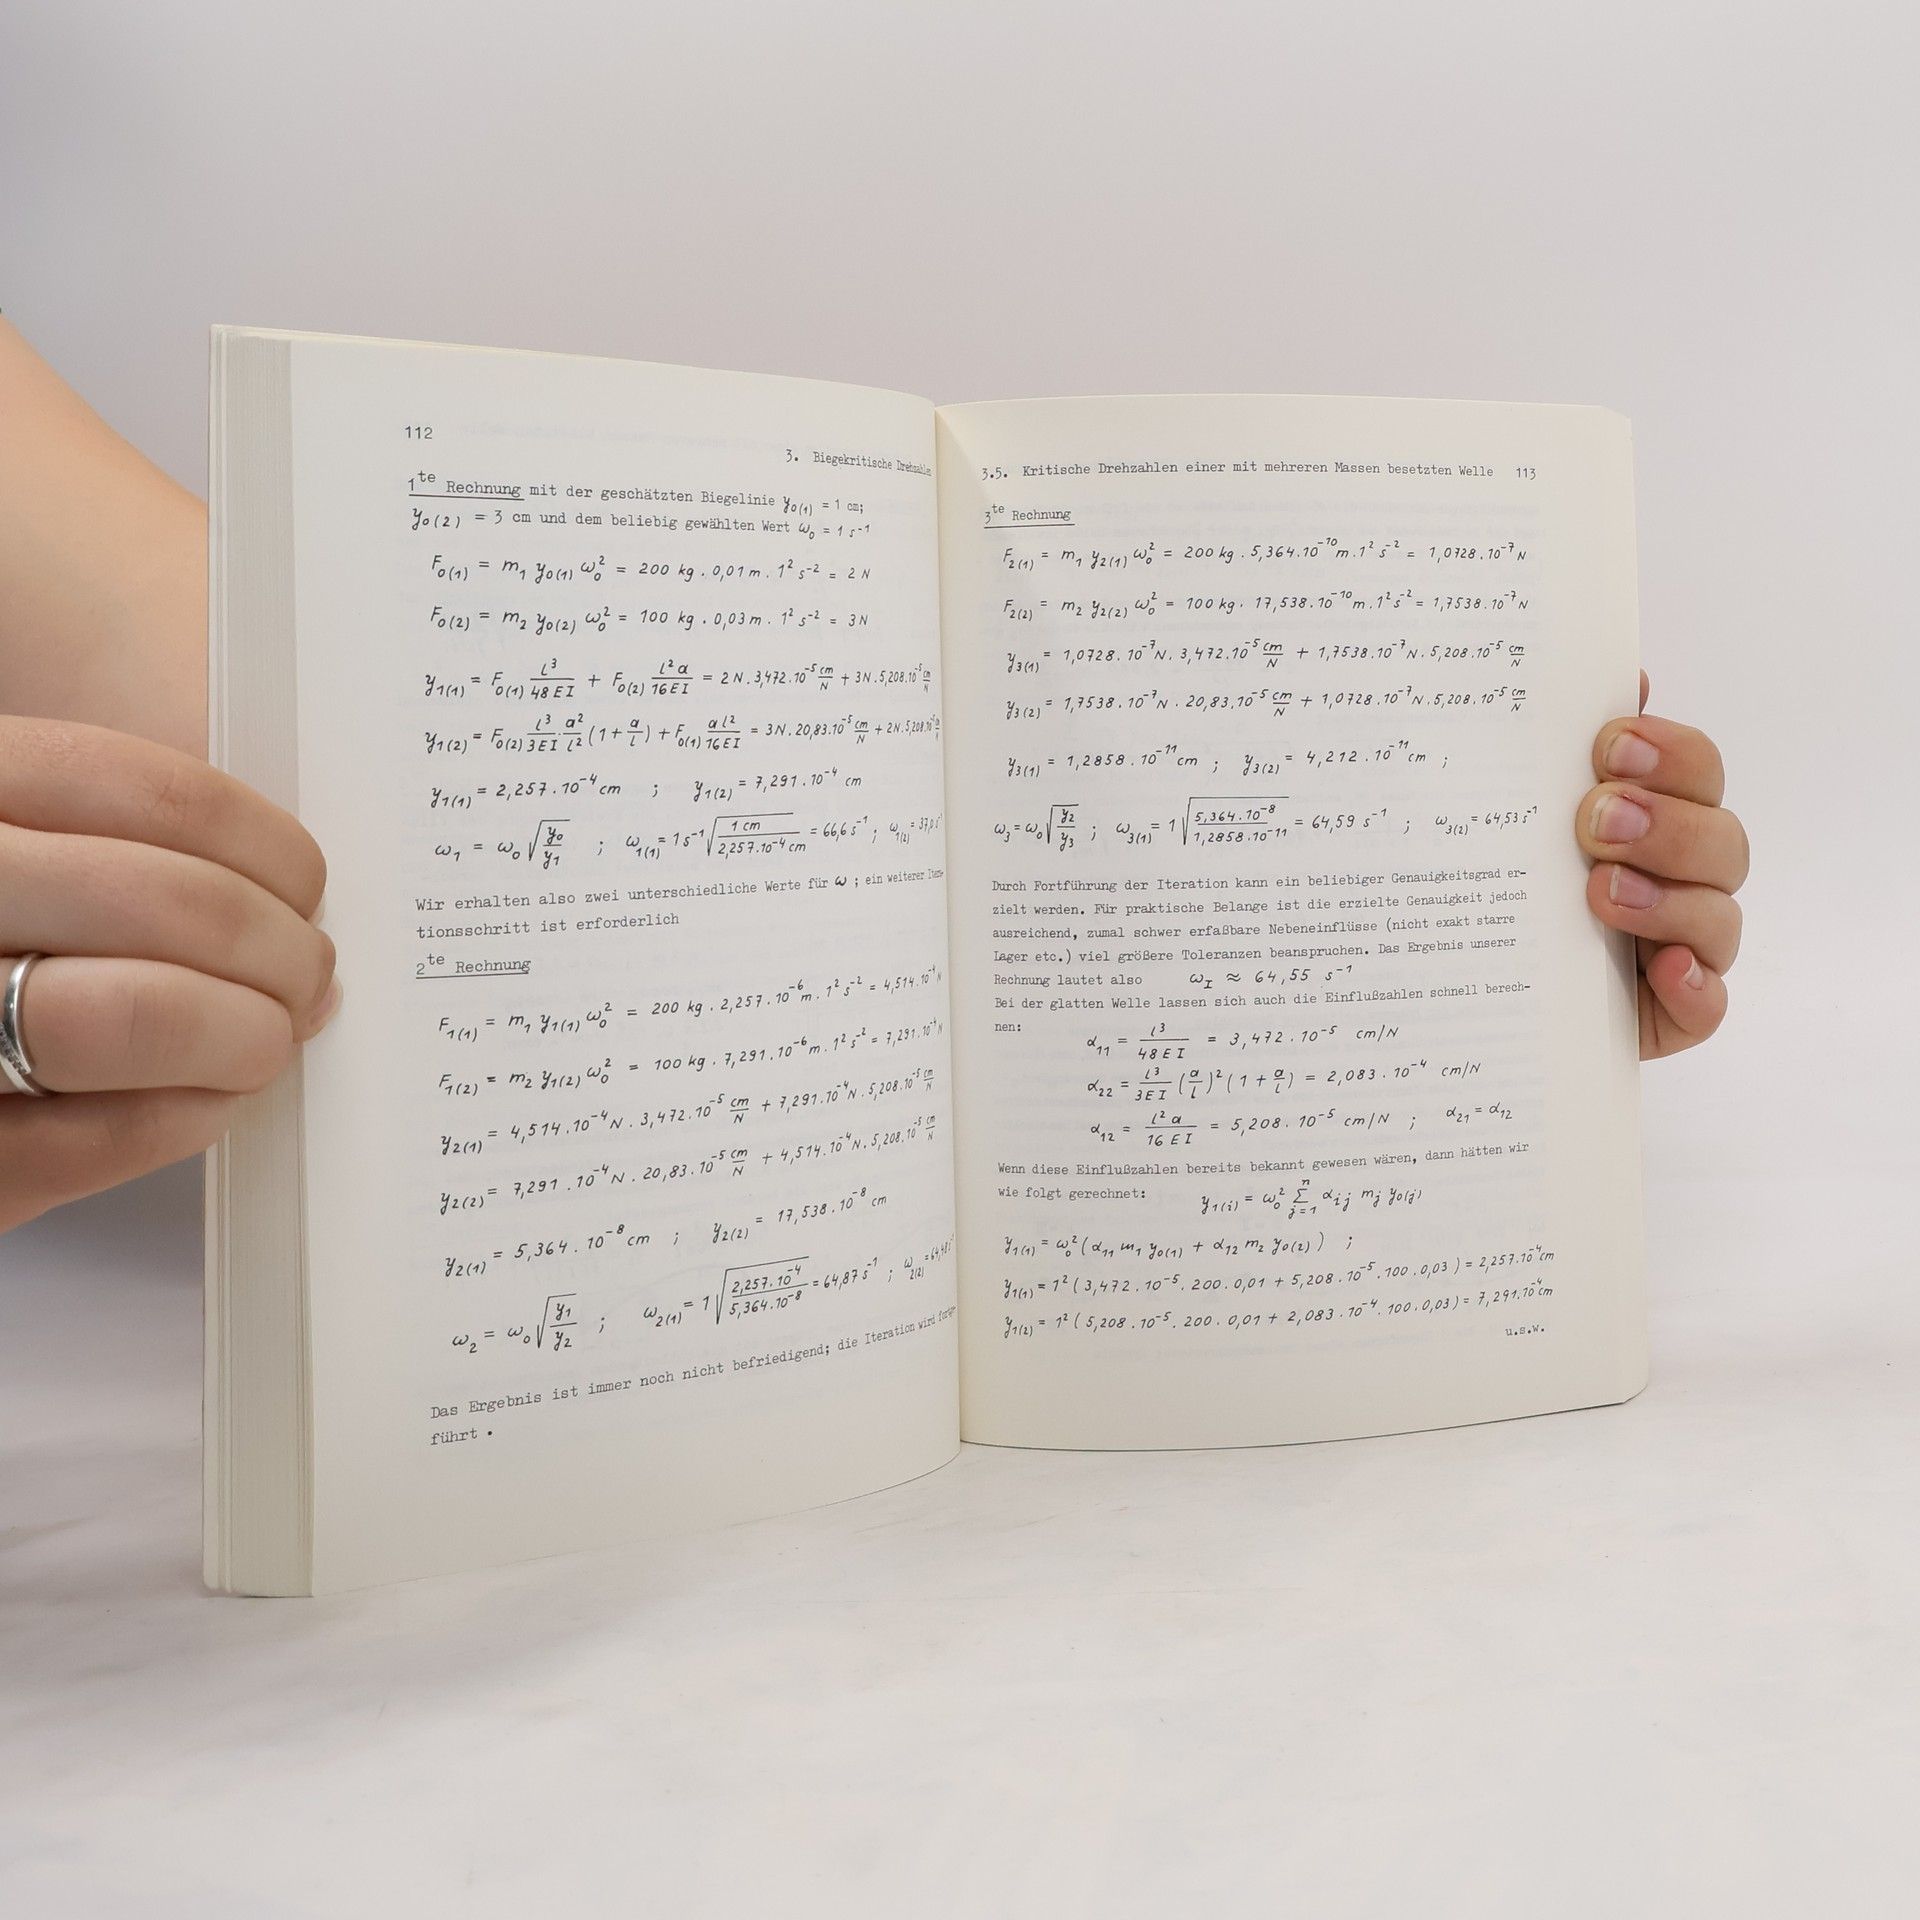 112
3. Biegekritische Drehzahlen
1te Rechnung mit der geschätzten Biegelinie y₀₍₁₎ = 1 cm;
y₀₍₂₎ = 3 cm und dem beliebig gewählten Wert ω₀ = 1 s⁻¹
F₀₍₁₎ = m₁ y₀₍₁₎ ω₀² = 200 kg . 0,01 m . 1² s⁻² = 2 N
F₀₍₂₎ = m₂ y₀₍₂₎ ω₀² = 100 kg . 0,03 m . 1² s⁻² = 3 N
y₁₍₁₎ = F₀₍₁₎ l³/48EI + F₀₍₂₎ l²a/16EI = 2N . 3,472.10⁻⁵ cm/N + 3N . 5,208.10⁻⁵ cm/N
y₁₍₂₎ = F₀₍₂₎ l³/3EI · a²/l² (1 + a/l) + F₀₍₁₎ al²/16EI = 3N . 20,83.10⁻⁵ cm/N + 2N . 5,208.10⁻⁵
y₁₍₁₎ = 2,257 . 10⁻⁴ cm ; y₁₍₂₎ = 7,291 . 10⁻⁴ cm
ω₁ = ω₀ √(y₀/y₁) ; ω₁₍₁₎ = 1 s⁻¹ √(1 cm / 2,257.10⁻⁴ cm) = 66,6 s⁻¹ ; ω₁₍₂₎ = 37,0 s⁻¹
Wir erhalten also zwei unterschiedliche Werte für ω ; ein weiterer Itera-
tionsschritt ist erforderlich
2te Rechnung
F₁₍₁₎ = m₁ y₁₍₁₎ ω₀² = 200 kg . 2,257 . 10⁻⁶ m . 1² s⁻² = 4,514.10⁻⁴ N
F₁₍₂₎ = m₂ y₁₍₂₎ ω₀² = 100 kg . 7,291 . 10⁻⁶ m . 1² s⁻² = 7,291.10⁻⁴ N
y₂₍₁₎ = 4,514 . 10⁻⁴ N . 3,472 . 10⁻⁵ cm/N + 7,291 . 10⁻⁴ N . 5,208.10⁻⁵ cm/N
y₂₍₂₎ = 7,291 . 10⁻⁴ N . 20,83 . 10⁻⁵ cm/N + 4,514 . 10⁻⁴ N . 5,208.10⁻⁵ cm/N
y₂₍₁₎ = 5,364 . 10⁻⁸ cm ; y₂₍₂₎ = 17,538 . 10⁻⁸ cm
ω₂ = ω₀ √(y₁/y₂) ; ω₂₍₁₎ = 1 √(2,257.10⁻⁴ / 5,364.10⁻⁸) = 64,87 s⁻¹ ; ω₂₍₂₎ = 64,48 s⁻¹
Das Ergebnis ist immer noch nicht befriedigend; die Iteration wird fortge-
führt .
3.5. Kritische Drehzahlen einer mit mehreren Massen besetzten Welle 113
3te Rechnung
F₂₍₁₎ = m₁ y₂₍₁₎ ω₀² = 200 kg . 5,364.10⁻¹⁰ m . 1² s⁻² = 1,0728 . 10⁻⁷ N
F₂₍₂₎ = m₂ y₂₍₂₎ ω₀² = 100 kg . 17,538.10⁻¹⁰ m . 1² s⁻² = 1,7538 . 10⁻⁷ N
y₃₍₁₎ = 1,0728 . 10⁻⁷ N . 3,472.10⁻⁵ cm/N + 1,7538 . 10⁻⁷ N . 5,208 . 10⁻⁵ cm/N
y₃₍₂₎ = 1,7538 . 10⁻⁷ N . 20,83.10⁻⁵ cm/N + 1,0728 . 10⁻⁷ N . 5,208 . 10⁻⁵ cm/N
y₃₍₁₎ = 1,2858 . 10⁻¹¹ cm ; y₃₍₂₎ = 4,212 . 10⁻¹¹ cm ;
ω₃ = ω₀ √(y₂/y₃) ; ω₃₍₁₎ = 1 √(5,364.10⁻⁸ / 1,2858.10⁻¹¹) = 64,59 s⁻¹ ; ω₃₍₂₎ = 64,53 s⁻¹
Durch Fortführung der Iteration kann ein beliebiger Genauigkeitsgrad er-
zielt werden. Für praktische Belange ist die erzielte Genauigkeit jedoch
ausreichend, zumal schwer erfaßbare Nebeneinflüsse (nicht exakt starre
Lager etc.) viel größere Toleranzen beanspruchen. Das Ergebnis unserer
Rechnung lautet also ω_I ≈ 64,55 s⁻¹
Bei der glatten Welle lassen sich auch die Einflußzahlen schnell berech-
nen:
α₁₁ = l³/48EI = 3,472 . 10⁻⁵ cm/N
α₂₂ = l³/3EI (a/l)² (1 + a/l) = 2,083 . 10⁻⁴ cm/N
α₁₂ = l²a/16EI = 5,208 . 10⁻⁵ cm/N ; α₂₁ = α₁₂
Wenn diese Einflußzahlen bereits bekannt gewesen wären, dann hätten wir
wie folgt gerechnet: y₁₍ᵢ₎ = ω₀² Σⁿⱼ₌₁ αᵢⱼ mⱼ y₀₍ⱼ₎
y₁₍₁₎ = ω₀² (α₁₁ m₁ y₀₍₁₎ + α₁₂ m₂ y₀₍₂₎) ;
y₁₍₁₎ = 1² (3,472 . 10⁻⁵ . 200 . 0,01 + 5,208 . 10⁻⁵ . 100 . 0,03) = 2,257.10⁻⁴ cm
y₁₍₂₎ = 1² (5,208 . 10⁻⁵ . 200 . 0,01 + 2,083 . 10⁻⁴ . 100 . 0,03) = 7,291.10⁻⁴ cm
u.s.w.